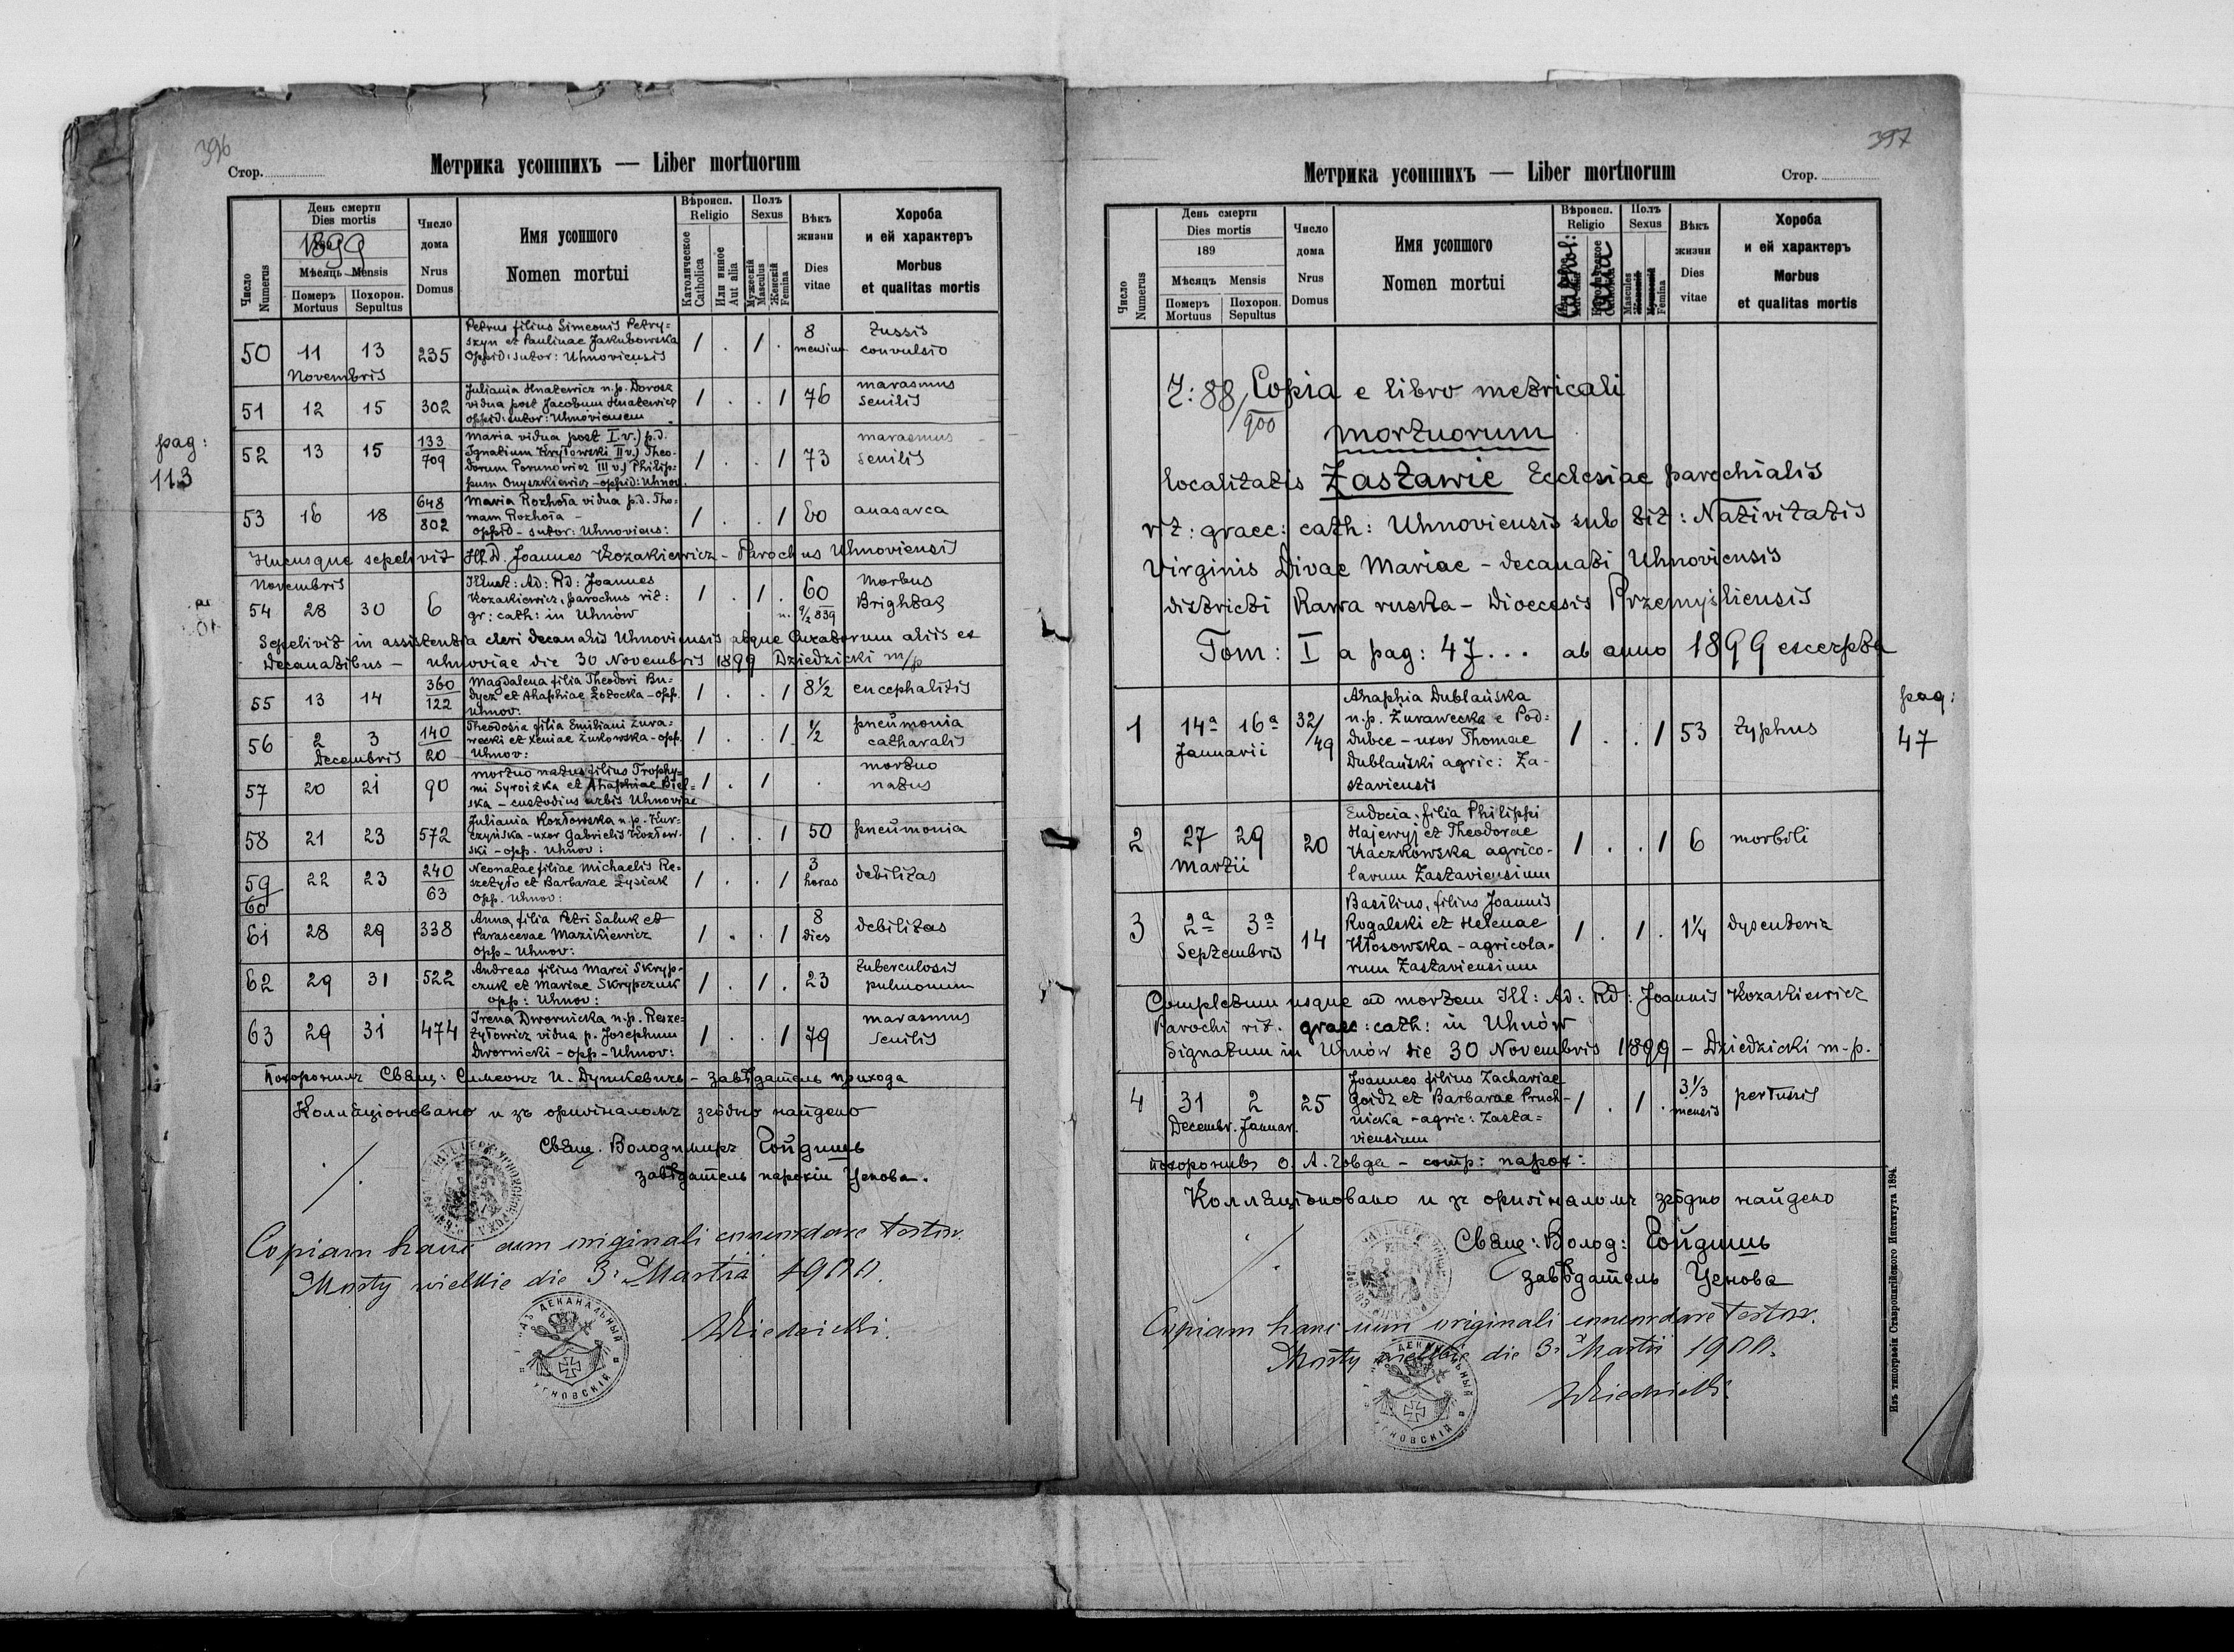 396
Стор.
Метрика усопшихъ — Liber mortuorum
Число Numerus
День смерти
Dies mortis
1899
Мѣсяць Mensis
Померъ Mortuus
Похорон. Sepultus
Число дома
Nrus Domus
Имя усопшого
Nomen mortui
Вѣроисп.
Religio
Католическое Catholica
Или инное Aut alia
Полъ
Sexus
Мужескій Masculus
Женскій Femina
Вѣкъ жизни
Dies vitae
Хороба
и ей характеръ
Morbus
et qualitas mortis
50 11 13 235 1 . 1 . 8 mensium
Novembris
Petrus filius Simeonis Petry=
szyn et Paulinae Jakubowska
Oppid: sutor: Uhnoviensis
tussis
convulsio
51 12 15 302 1 . . 1 76
Juliania Hnatewicz n.p. Dorosz
vidua post Jacobum Hnatewicz
oppid: sutor: Uhnoviensem
marasmus
senilis
pag:
113
52 13 15 133/709 1 . . 1 73
Maria vidua post I.v.) p.d.
Ignatium Kryłowski II v.) Theo-
dorum Porunowicz III v.) Philip=
pum Onyszkiewicz - oppid: Uhnov.
marasmus
senilis
53 16 18 648/802 1 . . 1 60
Maria Rozhoła vidua p.d. Tho=
mam Rozhoła -
oppid - sutor: Uhnoviens:
anasarca
Hucusque sepelivit Ill. D. Joannes Kozakiewicz - Parochus Uhnoviensis
Novembris
54 28 30 6 1 . 1 . 60
Joannes
Kozakiewicz, parochus rit:
gr: cath: in Uhnów
n. 9/2 839
Morbus
Brightas
Sepelivit in assistentia cleri decanatus Uhnoviensis atque Curatorum aliis ex
Decanatibus - Uhnoviae die 30 Novembris 1899 Dziedzicki m/p
55 13 14 360/122 1 . . 1 8½
Magdalena filia Theodori Bu-
dycz et Ahaphiae Łotocka - opp.
Uhnov:
encephalitis
56 2 3 140/20 1 . . 1 ½
Decembris
Theodosia filia Emiliani Żura=
wecki et Xeniae Żukowska - opp.
Uhnov:
pneumonia
catharalis
57 20 21 90 1 . 1 .
mortuo natus filius Trophy=
mi Syroiżka et Ahaphiae Biel=
ska - custodius urbis Uhnoviae
mortuo
natus
58 21 23 572 1 . . 1 50
Juliania Kozłowska n.p. Kur-
czyńska - uxor Gabrielis Kozłow.
ski - opp. Uhnov:
pneumonia
59/60 22 23 240/63 1 . . 1 3 horas
Neonatae filiae Michaelis Re=
szetyło et Barbarae Łysiak
opp. Uhnov:
debilitas
61 28 29 338 1 . . 1 8 dies
Anna, filia Petri Saluk et
Parascevae Mazikiewicz
opp - Uhnov:
debilitas
62 29 31 522 1 . 1 . 23
Andreas filius Marci Skryp-
czuk et Mariae Skrypczuk
opp: Uhnov:
tuberculosis
pulmonum
63 29 31 474 1 . . 1 79
Irena Dwornicka n.p. Resze=
tyłowicz vidua p. Josephum
Dwornicki - opp - Uhnov:
marasmus
senilis
Похоронилъ Свящ: Симеонъ И. Душкевичъ - завѣдатель прихода
Коллаціоновано и зъ оригіналомъ згôдно найдено
Свящ. Володимиръ Гойдишь
завѣдатель парохіи Угнова.
Copiam hanc cum originali concordare testor.
Mosty wielkie die 3. Martia 1900.
Dziedzicki.
ДЕКАНАЛЬНЫЙ
УГНОВСКІЙ
397
Метрика усопшихъ — Liber mortuorum
Стор.
Число Numerus
День смерти
Dies mortis
189
Мѣсяцъ Mensis
Померъ Mortuus
Похорон. Sepultus
Число дома
Nrus Domus
Имя усопшого
Nomen mortui
Вѣроисп.
Religio
Cathol:
alia
Полъ
Sexus
Mascules
Femina
Вѣкъ жизни
Dies vitae
Хороба
и ей характеръ
Morbus
et qualitas mortis
88/900 Copia e libro metricali
mortuorum
localitatis Zastawie Ecclesiae parochialis
rit: graec: cath: Uhnoviensis sub tit: Nativitatis
Virginis Divae Mariae - decanati Uhnoviensis
districti Rawa ruska - Dioecesis Przemysliensis
Tom: I a pag: 47... ab anno 1899 excerpta
pag:
47
1 14a 16a 32/49 1 . . 1 53
Januarii
Ahaphia Dublańska
n.p. Żurawecka e Pod=
dubce - uxor Thomae
Dublański agric: Za-
staviensis
typhus
2 27 29 20 1 . . 1 6
Martii
Eudocia, filia Philippi
Hajewyj et Theodorae
Kaczkowska agrico-
larum Zastaviensium
morbili
3 2a 3a 14 1 . 1 . 1¼
Septembris
Basilius, filius Joannis
Rogalski et Helenae
Kłosowska - agricola=
rum Zastaviensium
dysenteria
Completum usque ad mortem Ill: Ad: Rd: Joannis Kozakiewicz
Parochi rit. graec: cath: in Uhnów
Signatum in Uhnów die 30 Novembris 1899 - Dziedzicki m-p.
4 31 2 25 1 . 1 . 3⅓ mensis
Decembr. Januar.
Joannes filius Zachariae
Goidz et Barbarae Pruch-
nicka - agric: Zasta=
viensium
pertussis
похоронивъ О. А. Човда - сотр: парох:
Коллаціоновано и зъ оригіналомъ згôдно найдено
Свящ: Волод: Гойдишь
завѣдатель Угнова
Copiam hanc cum originali concordare testor.
Mosty wielkie die 3. Martii 1900.
Dziedzicki.
ДЕКАНАЛЬНЫЙ
УГНОВСКІЙ
Изъ типографіи Ставропигійского Института 1894.